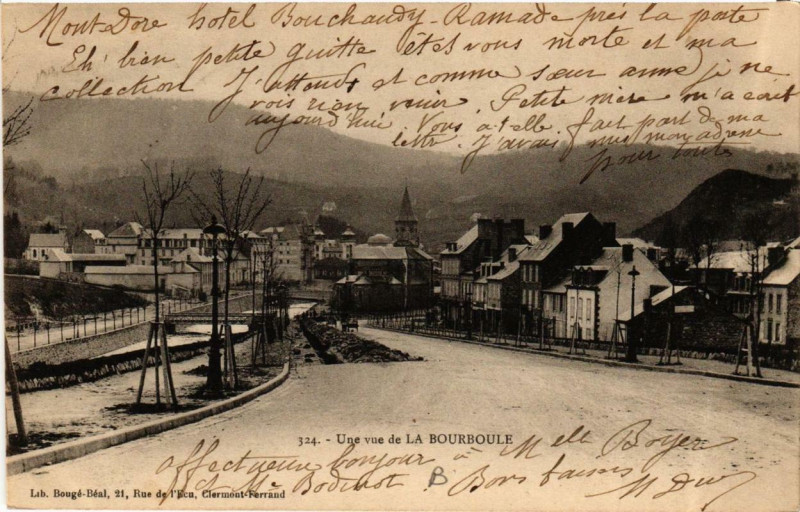 Mont Dore hôtel Bouchaudy-Ramade près la poste
Eh' bien petite quitte êtes vous morte et ma
collection J'attends et comme sœur anne je ne
vois rien venir. Petite mère m'a écrit
aujourd'hui. Vous a-t-elle fait part de ma
lettre. J'avais mis mon adresse
pour toutes
324. - Une vue de LA BOURBOULE
affectueux bonjour à Melle Boyer
et Me Bodinot B Bons baisers
Lib. Bougé-Béal, 21, Rue de l'Ecu, Clermont-Ferrand